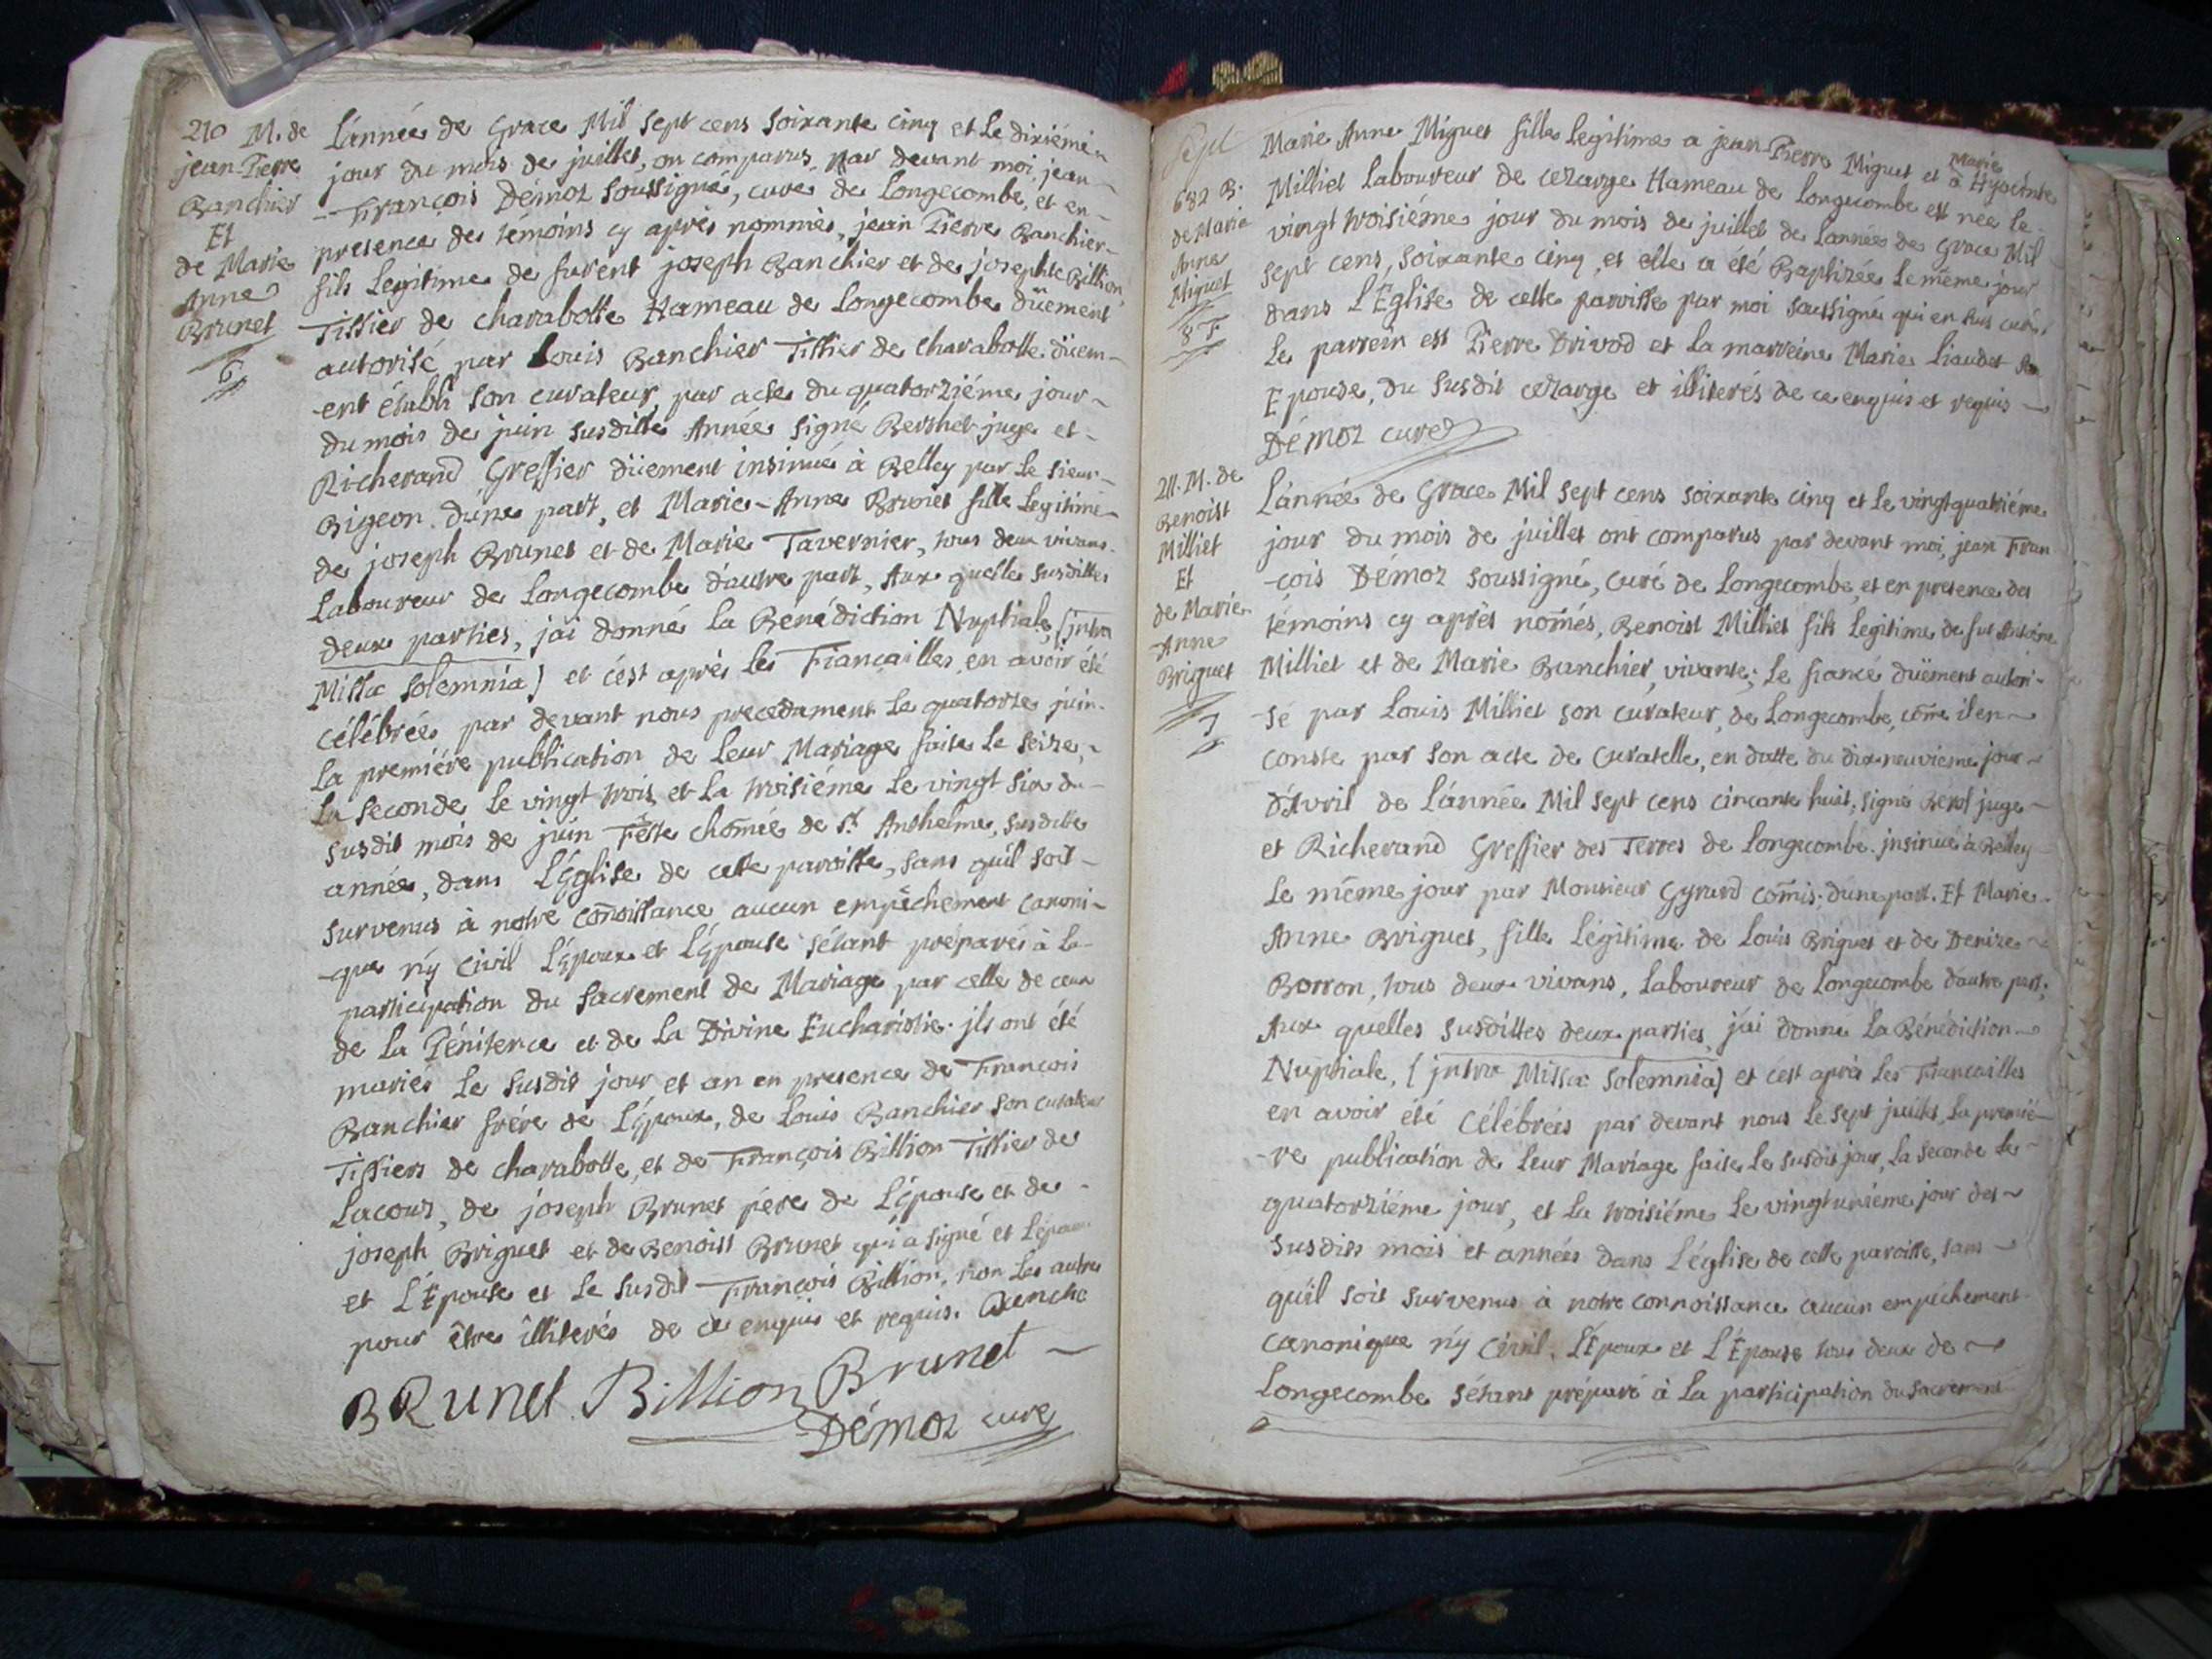 210 M. de
jean-Pierre
Banchier
Et
de Marie
Anne
Brunet
6
L'année de Grace Mil sept cens soixante cinq et le dixiéme
jour du mois de juillet, on comparus par devant moi, jean-
-François Démoz soussigné, curé de Longecombe, et en-
presence des témoins cy après nommés, jean Pierre Banchier-
fils Legitime de furent joseph Banchier et de josephte Billion,
Tissier de charabotte Hameau de Longecombe düement
autorisé par Louis Banchier Tissier de charabotte düem-
-ent établi son curateur, par acte du quatorziéme jour-
du mois de juin susditte Année signé Bershet juge et-
Richerand Greffier düement insinué à Belley par le sieur-
Bigeon d'une part, et Marie-Anne Brunet fille Legitime-
de joseph Brunet et de Marie Tavernier, tous deux vivans.
Laboureur de Longecombe d'autre part, Aux quelles susdittes
deux parties, jai donné la Bénédiction Nuptiale, (intra
Missæ solemnia) et c'est après les Fiançailles en avoir été
célébrées par devant nous precedament le quatorze juin.
La premiére publication de leur Mariage faite le seize,-
La seconde le vingt trois et la troisiéme le vingt six du-
susdit mois de juin Fête chomée de St Anthelme, susditte
année, dans L'Eglise de cette paroisse, sans qu'il soit-
survenus à notre connoissance aucun empêchement canoni-
-que n'y civil L'Epoux et L'Epouse s'étant préparés à la-
participation du sacrement de Mariage par celle de ceux
de la Pénitence et de la Divine Eucharistie. jls ont été
mariés le susdit jour et an en presence de François
Banchier frére de L'Epoux, de Louis Banchier son curateur
Tissiers de charabotte, et de François Billion Tissier de
Lacoux, de joseph Brunet pére de L'Epouse et de-
joseph Briguet et de Benoist Brunet qui a signé et L'époux
et L'Epouse et le susdit François Billion, non les autres
pour être illiterés de ce enquis et requis. Banche
BRunet Billion Brunet
Démoz curé
Sept
682 B.
de Marie
Anne
Miguet
8 F
Marie Anne Miguet fille Legitime a jean-Pierre Miguet et à Marie Hyacinte
Milliet Laboureur de cezarge Hameau de Longecombe est née le-
vingt troisiéme jour du mois de juillet de L'année de Grace Mil
sept cens, soixante cinq, et elle a été Baptizée le même jour
dans L'Eglise de cette paroisse par moi soussigné qui en suis curé.
Le parrein est Pierre Drivod et la marreine Marie Liaudet sa
Epouse, du susdit cezarge et illiterés de ce enquis et requis
Démoz curé
211. M. de
Benoist
Milliet
Et
de Marie
Anne
Briguet
7
L'année de Grace Mil sept cens soixante cinq et le vingt quatriéme
jour du mois de juillet ont comparus par devant moi, jean Fran
-çois Démoz soussigné, curé de Longecombe, et en presence des
témoins cy après només, Benoist Milliet fils Legitime de fut Antoine
Milliet et de Marie Banchier, vivante; le fiancé düement autori-
-sé par Louis Milliet son curateur, de Longecombe, côme il en
conste par son acte de Curatelle, en datte du dix neuvieme jour
d'Avril de L'année Mil sept cens cincante huit, signé juge
et Richerand Greffier des Terres de Longecombe. jnsinué à Belley
Le même jour par Monsieur Gyrard comis; d'une part. Et Marie.
Anne Briguet, fille Légitime de Louis Briguet et de Denize
Borron, tous deux vivans, Laboureur de Longecombe d'autre part;
Aux quelles susdittes deux parties, j'ai donné la Bénédiction
Nuptiale, (jntra Missæ solemnia) et c'est après les Fiancailles
en avoir été célébrées par devant nous le sept juillet, la premié-
-re publication de leur Mariage faite le susdit jour, la seconde le-
quatorziéme jour, et la troisiéme le vingtuniéme jour des
susdits mois et années dans L'église de cette paroisse, sans
qu'il soit survenus à notre connoissance aucun empéchement
canonique n'y civil. L'Epoux et L'Epouse tous deux de
Longecombe s'étant préparé à la participation du sacrement